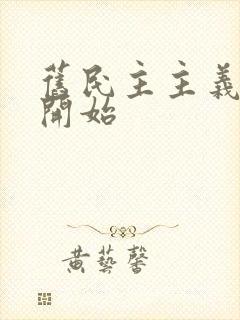 舊民主主義
開始
黄藝馨